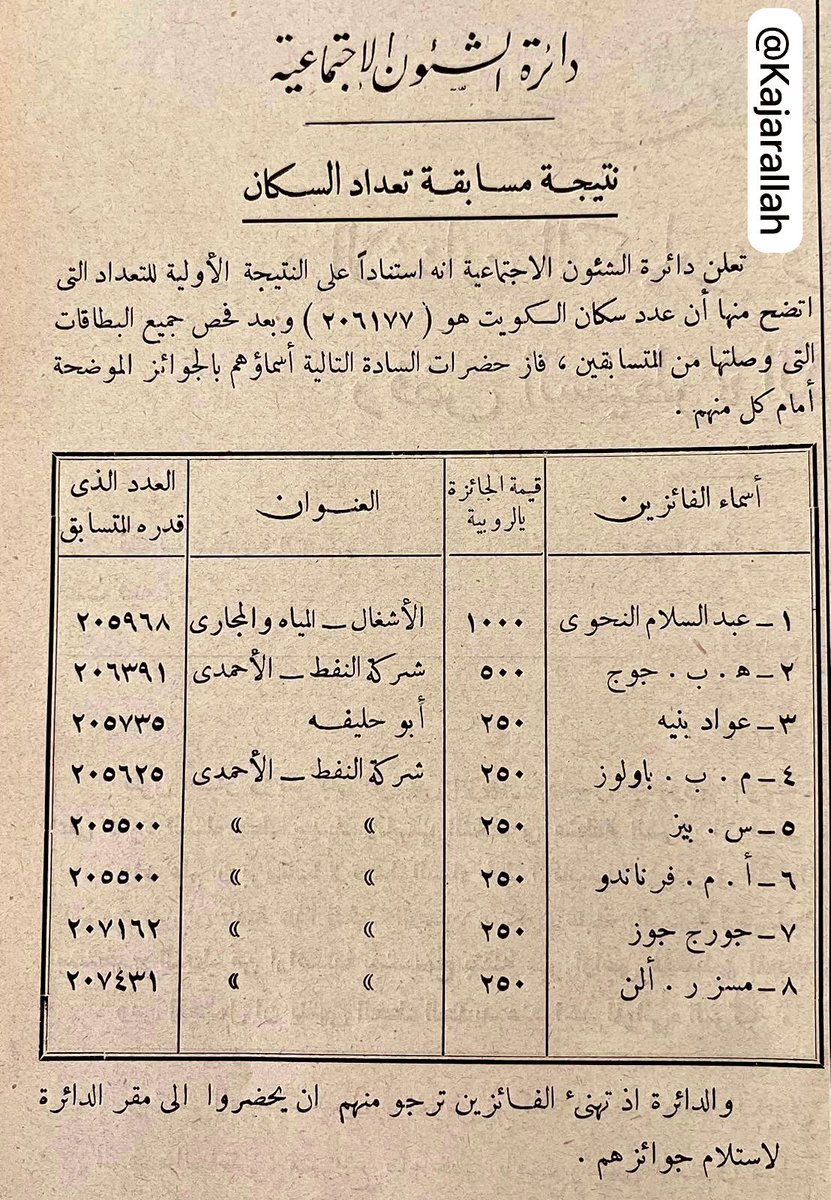 @Kajarallah
دائرة الشئون الاجتماعية
نتيجة مسابقة تعداد السكان
تعلن دائرة الشئون الاجتماعية انه استناداً على النتيجة الأولية للتعداد التى
اتضح منها أن عدد سكان الكويت هو ( ٢٠٦١٧٧ ) وبعد فحص جميع البطاقات
التى وصلتها من المتسابقين ، فاز حضرات السادة التالية أسماؤهم بالجوائز الموضحة
أمام كل منهم .
أسماء الفائزين | قيمة الجائزة بالروبية | العنوان | العدد الذى قدره المتسابق
١ – عبد السلام النحوى | ١٠٠٠ | الأشغال – المياه والمجارى | ٢٠٥٩٦٨
٢ – ه . ب . جوج | ٥٠٠ | شركة النفط – الأحمدى | ٢٠٦٣٩١
٣ – عواد بنيه | ٢٥٠ | أبو حليفه | ٢٠٥٧٣٥
٤ – م . ب . باولوز | ٢٥٠ | شركة النفط – الأحمدى | ٢٠٥٦٢٥
٥ – س . بيز | ٢٥٠ | » » | ٢٠٥٥٠٠
٦ – أ . م . فرناندو | ٢٥٠ | » » | ٢٠٥٥٠٠
٧ – جورج جوز | ٢٥٠ | » » | ٢٠٧١٦٢
٨ – مسز ر . ألن | ٢٥٠ | » » | ٢٠٧٤٣١
والدائرة اذ تهنىء الفائزين ترجو منهم ان يحضروا الى مقر الدائرة
لاستلام جوائزهم .